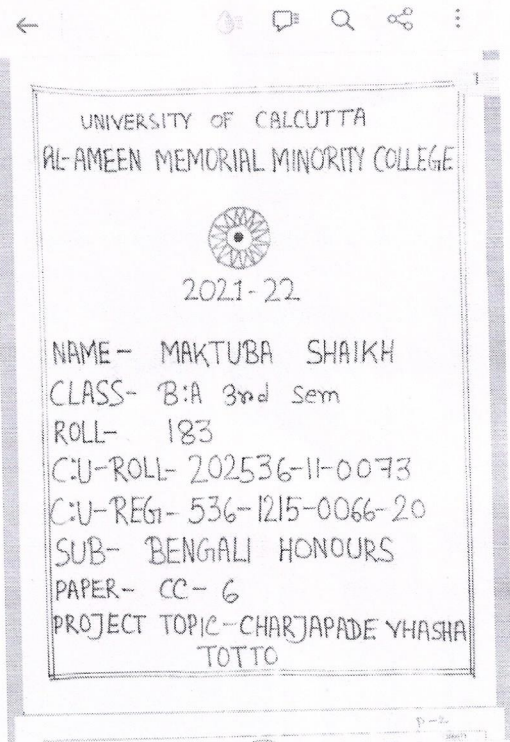 1
UNIVERSITY OF CALCUTTA
AL-AMEEN MEMORIAL MINORITY COLLEGE
2021-22
NAME- MAKTUBA SHAIKH
CLASS- B:A 3rd Sem
ROLL- 183
C:U-ROLL- 202536-11-0073
C:U-REG- 536-1215-0066-20
SUB- BENGALI HONOURS
PAPER- CC- 6
PROJECT TOPIC-CHARJAPADE VHASHA
TOTTO
P-2